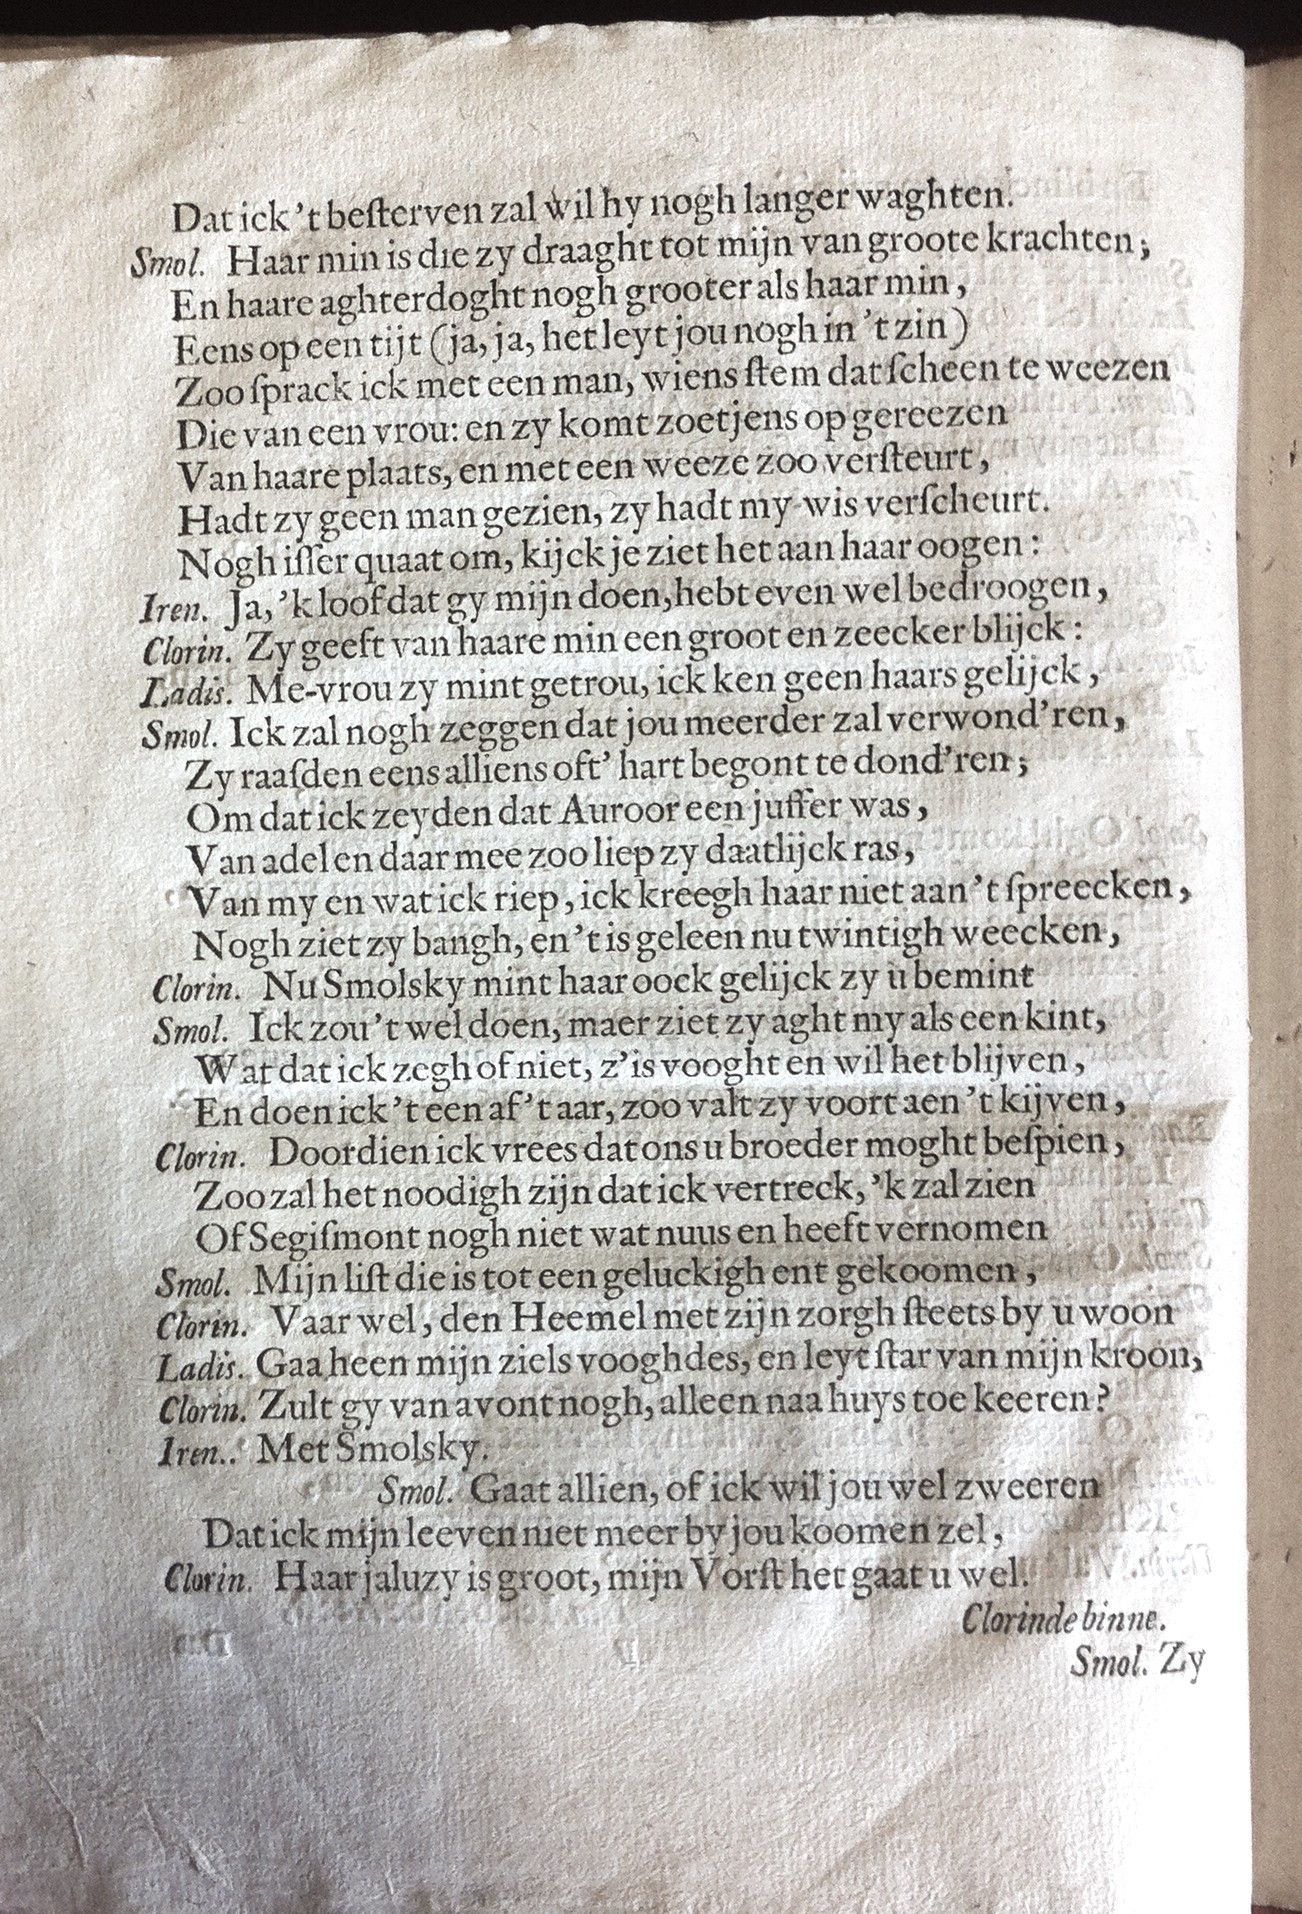 Dat ick 't beſterven zal wil hy nogh langer waghten.
Smol. Haar min is die zy draaght tot mijn van groote krachten;
En haare aghterdoght nogh grooter als haar min,
Eens op een tijt (ja, ja, het leyt jou nogh in 't zin)
Zoo ſprack ick met een man, wiens ſtem dat ſcheen te weezen
Die van een vrou: en zy komt zoetjens op gereezen
Van haare plaats, en met een weeze zoo verſteurt,
Hadt zy geen man gezien, zy hadt my wis verſcheurt.
Nogh iſſer quaat om, kijck je ziet het aan haar oogen:
Iren. Ja, 'k loof dat gy mijn doen, hebt even wel bedroogen,
Clorin. Zy geeft van haare min een groot en zeecker blijck:
Ladis. Me-vrou zy mint getrou, ick ken geen haars gelijck,
Smol. Ick zal nogh zeggen dat jou meerder zal verwond'ren,
Zy raaſden eens alliens oft' hart begont te dond'ren;
Om dat ick zeyden dat Auroor een juffer was,
Van adel en daar mee zoo liep zy daatlijck ras,
Van my en wat ick riep, ick kreegh haar niet aan 't ſpreecken,
Nogh ziet zy bangh, en 't is geleen nu twintigh weecken,
Clorin. Nu Smolsky mint haar oock gelijck zy u bemint
Smol. Ick zou 't wel doen, maer ziet zy aght my als een kint,
Wat dat ick zegh of niet, z'is vooght en wil het blijven,
En doen ick 't een af 't aar, zoo valt zy voort aen 't kijven,
Clorin. Doordien ick vrees dat ons u broeder moght beſpien,
Zoo zal het noodigh zijn dat ick vertreck, 'k zal zien
Of Segiſmont nogh niet wat nuus en heeft vernomen
Smol. Mijn liſt die is tot een geluckigh ent gekoomen,
Clorin. Vaar wel, den Heemel met zijn zorgh ſteets by u woon
Ladis. Gaa heen mijn ziels vooghdes, en leyt ſtar van mijn kroon,
Clorin. Zult gy van avont nogh, alleen naa huys toe keeren?
Iren.. Met Smolsky.
Smol. Gaat allien, of ick wil jou wel zweeren
Dat ick mijn leeven niet meer by jou koomen zel,
Clorin. Haar jaluzy is groot, mijn Vorſt het gaat u wel.
Clorinde binne.
Smol. Zy